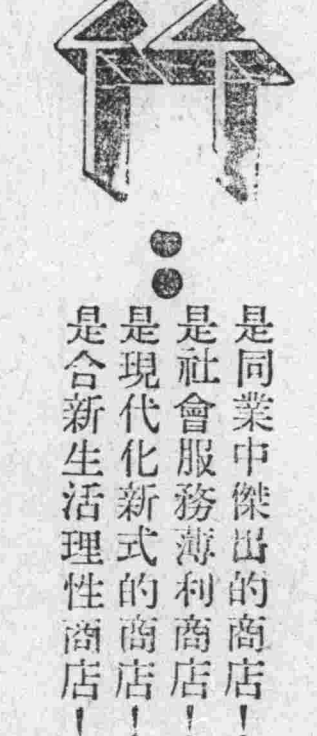 竹
：
是同業中傑出的商店！
是社會服務薄利商店！
是現代化新式的商店！
是合新生活理性商店！